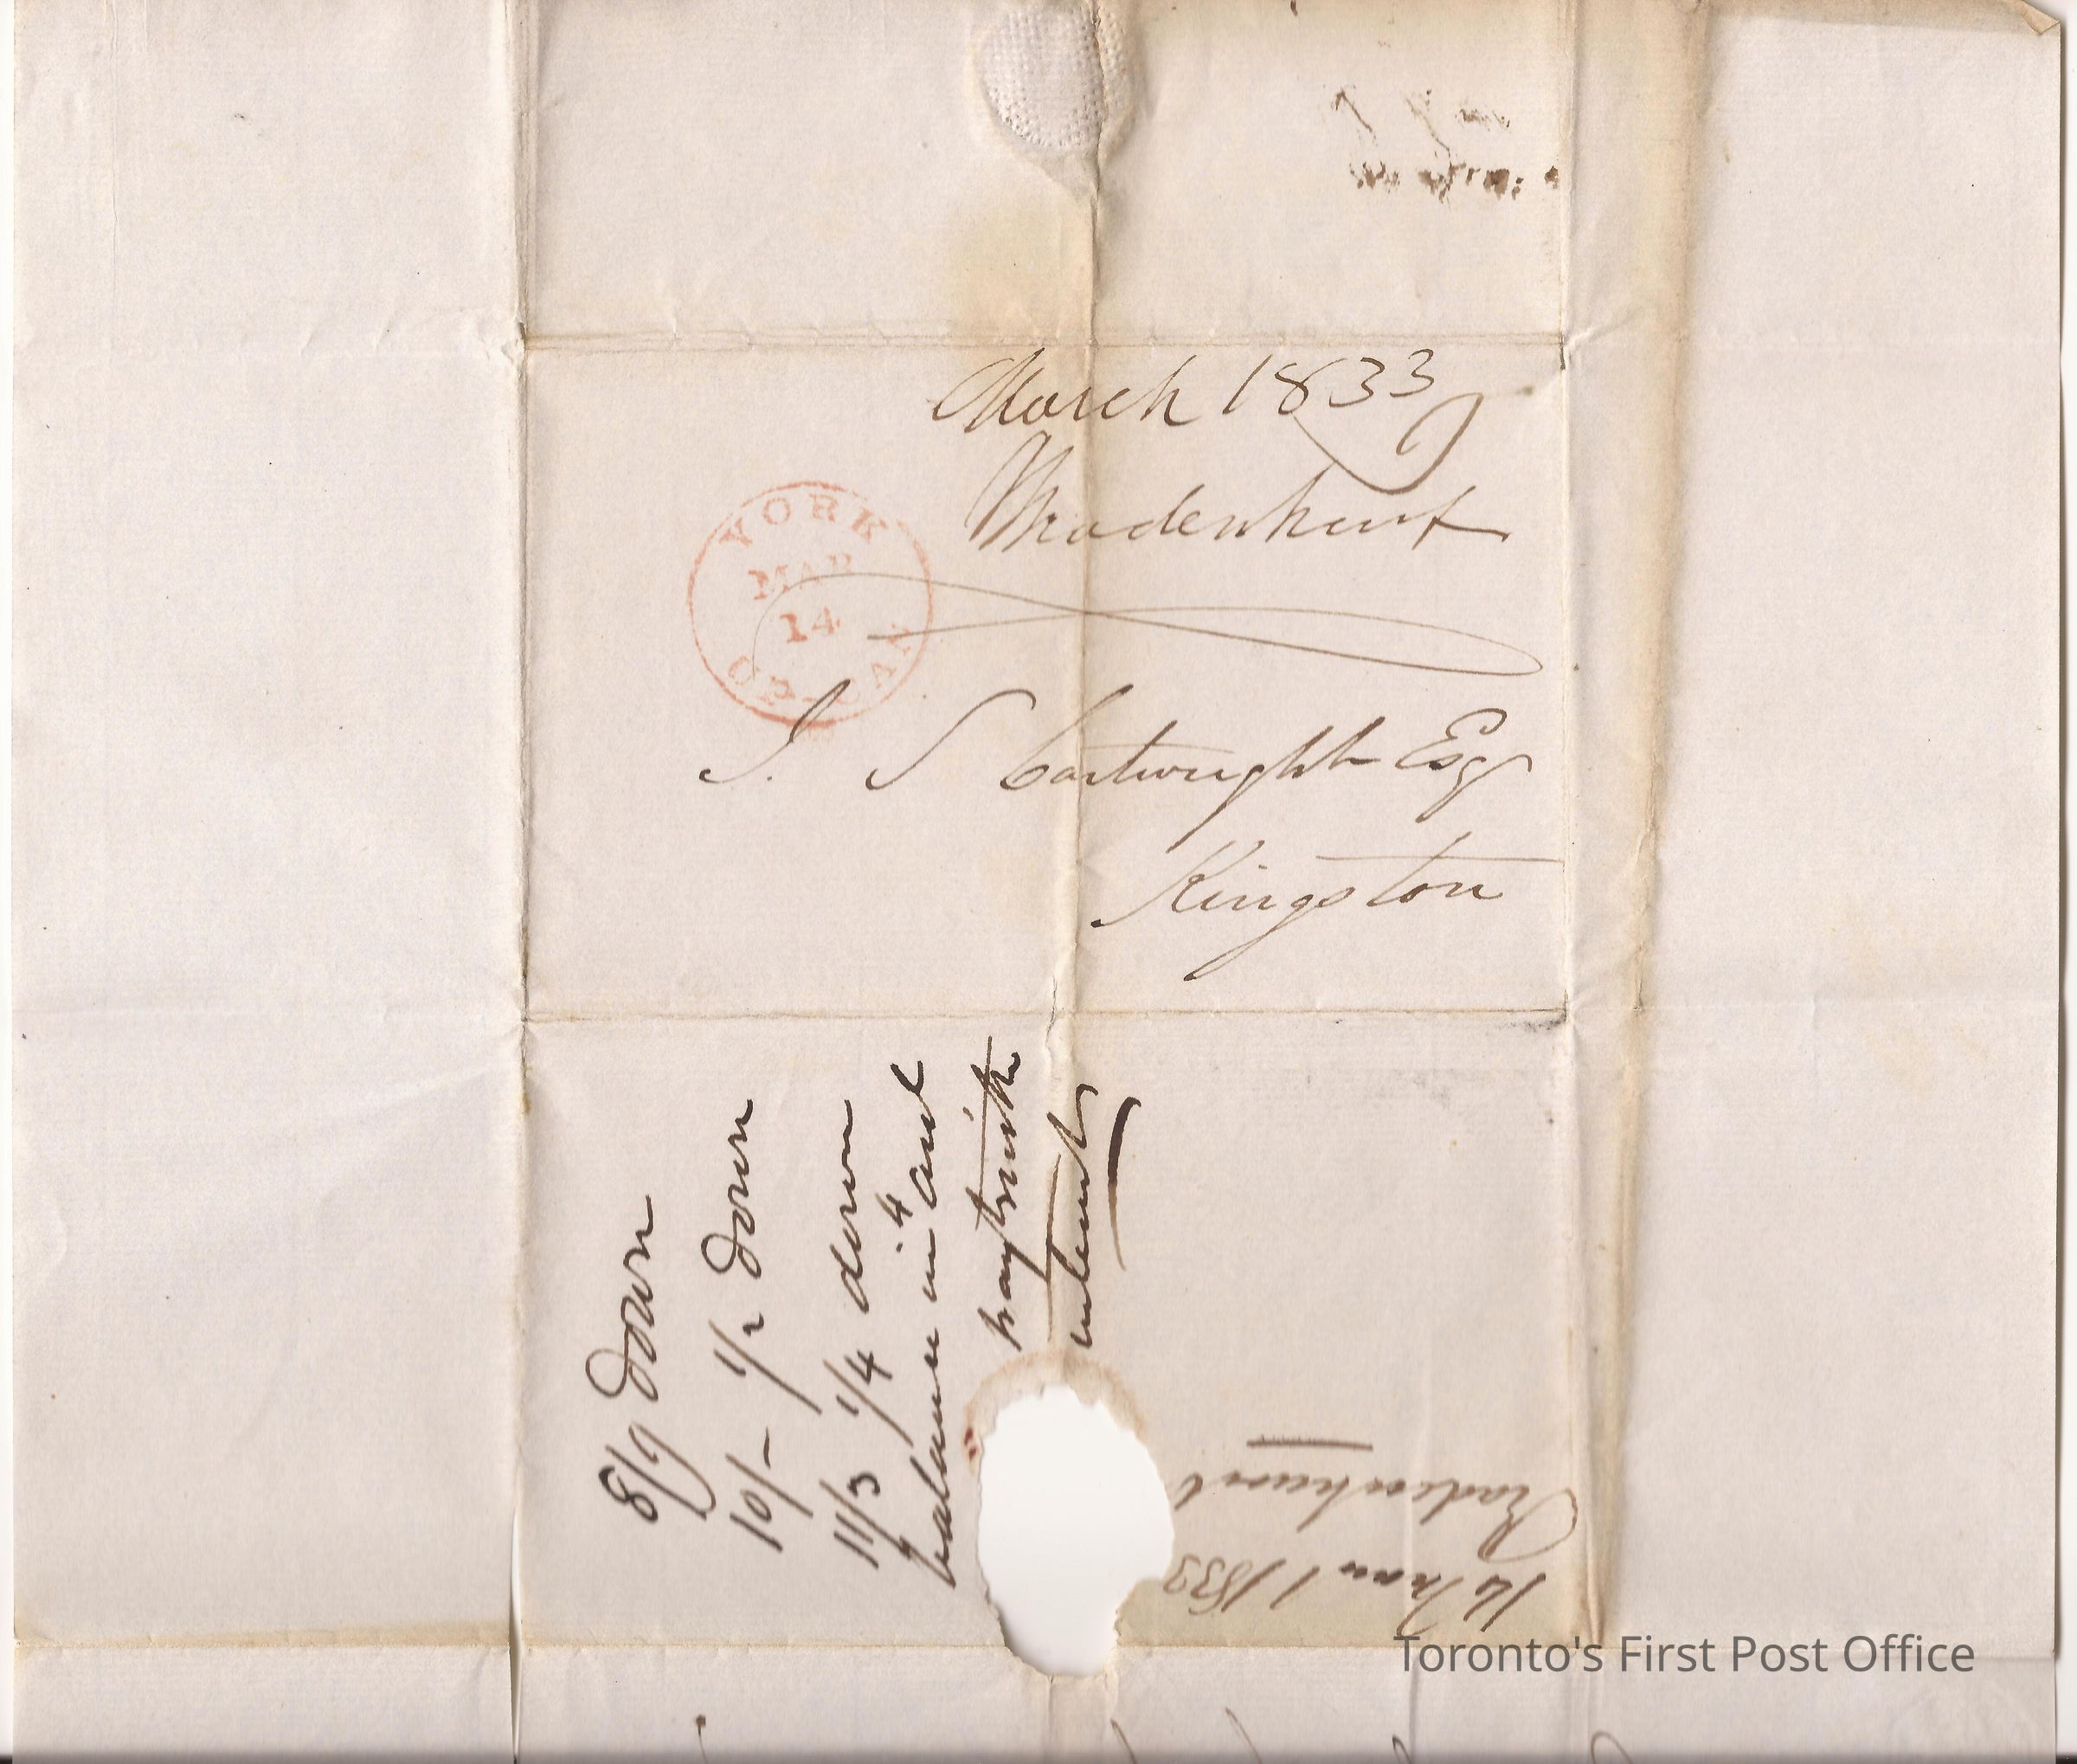 March 1833
Radenhurst
YORK
MAR
14
U. CAN
J. S Cartwright Esq
Kingston
8/9 down
10/- 1/2 down
11/3 1/4 down
balance in 4 and
pay't with
interest
14 1833
Radenhurst
Toronto's First Post Office